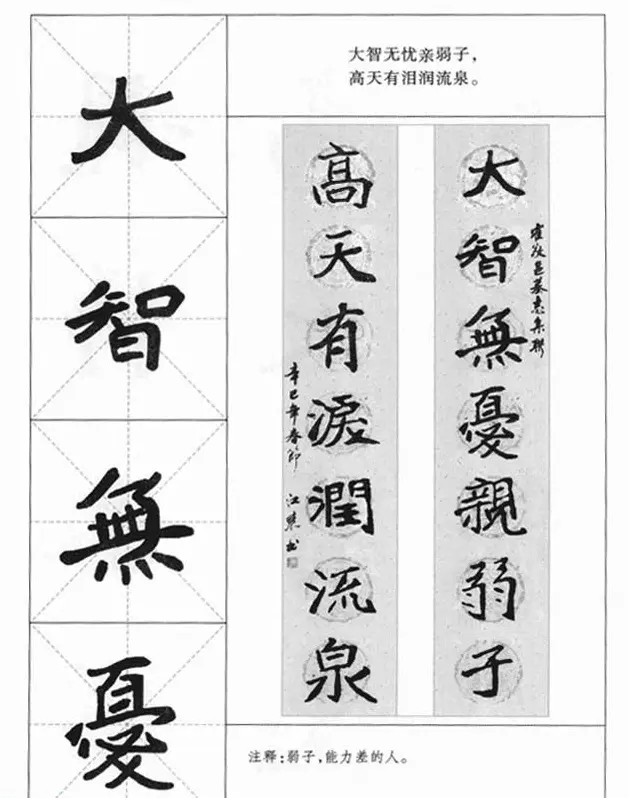 大智无忧亲弱子，
高天有泪润流泉。
大
智
無
憂
大智無憂親弱子
崔敬邕墓志集聯
高天有淚潤流泉
辛巳年春節 江 书
注释：弱子，能力差的人。